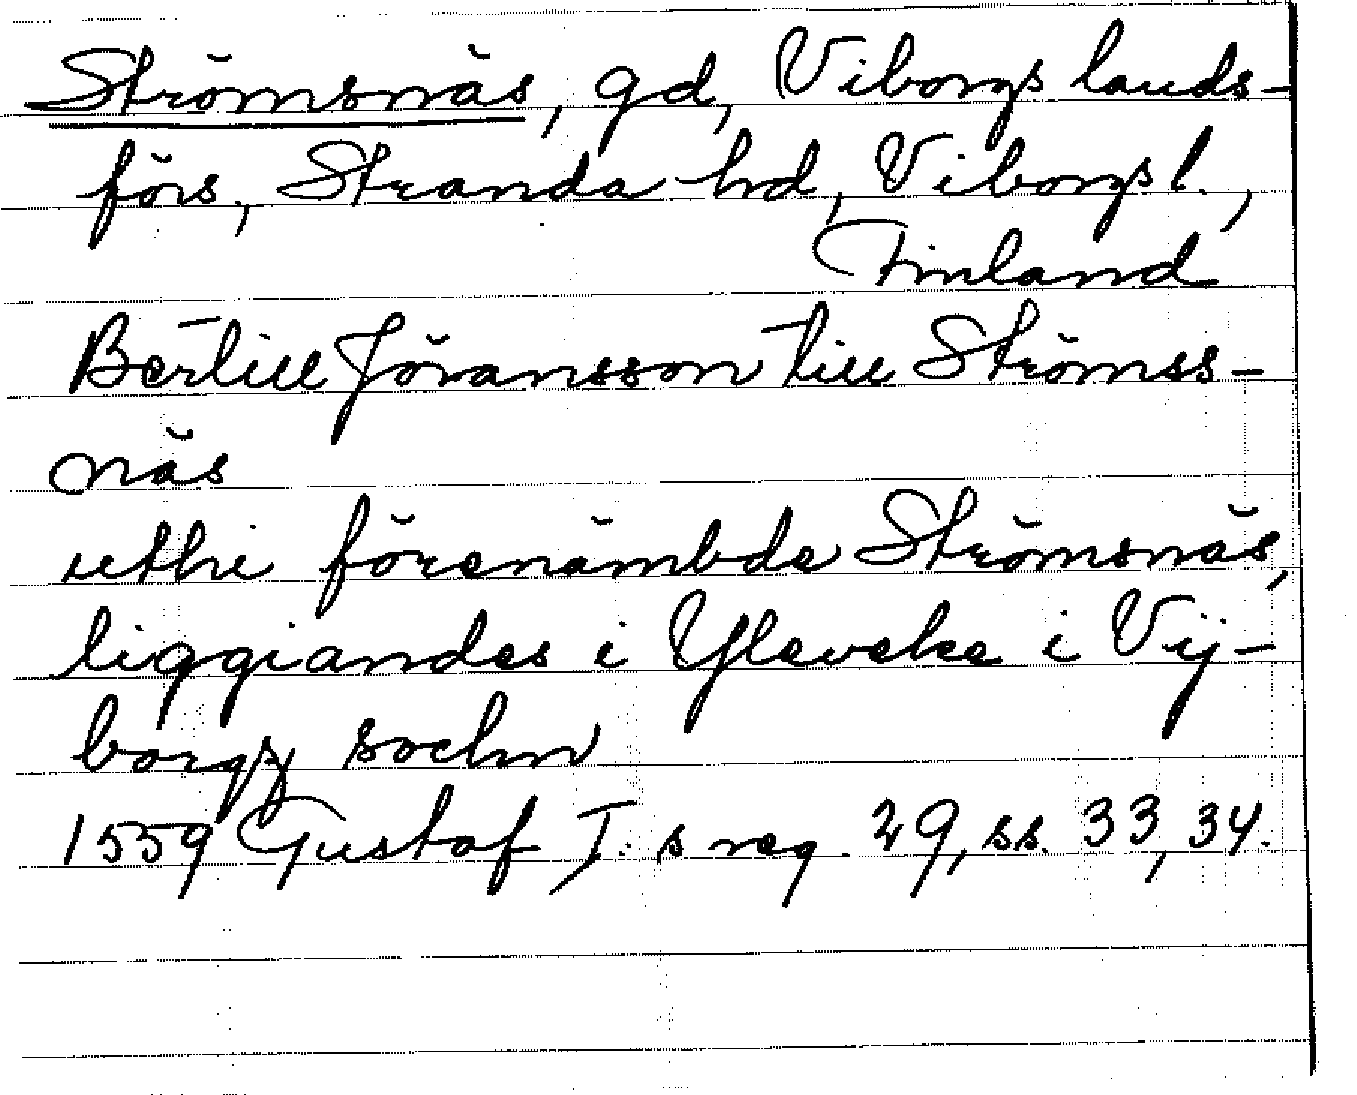 Strömsnäs, gd, Viborgs lands-
förs., Stranda hd, Viborgs l.,
Finland
Bertill Jöransson till Strömss-
näs
uthi förenämbde Strömsnäs,
liggiandes i Yleveke i Vij-
borgz sochn
1559 Gustaf I:s reg. 29, ss. 33, 34.